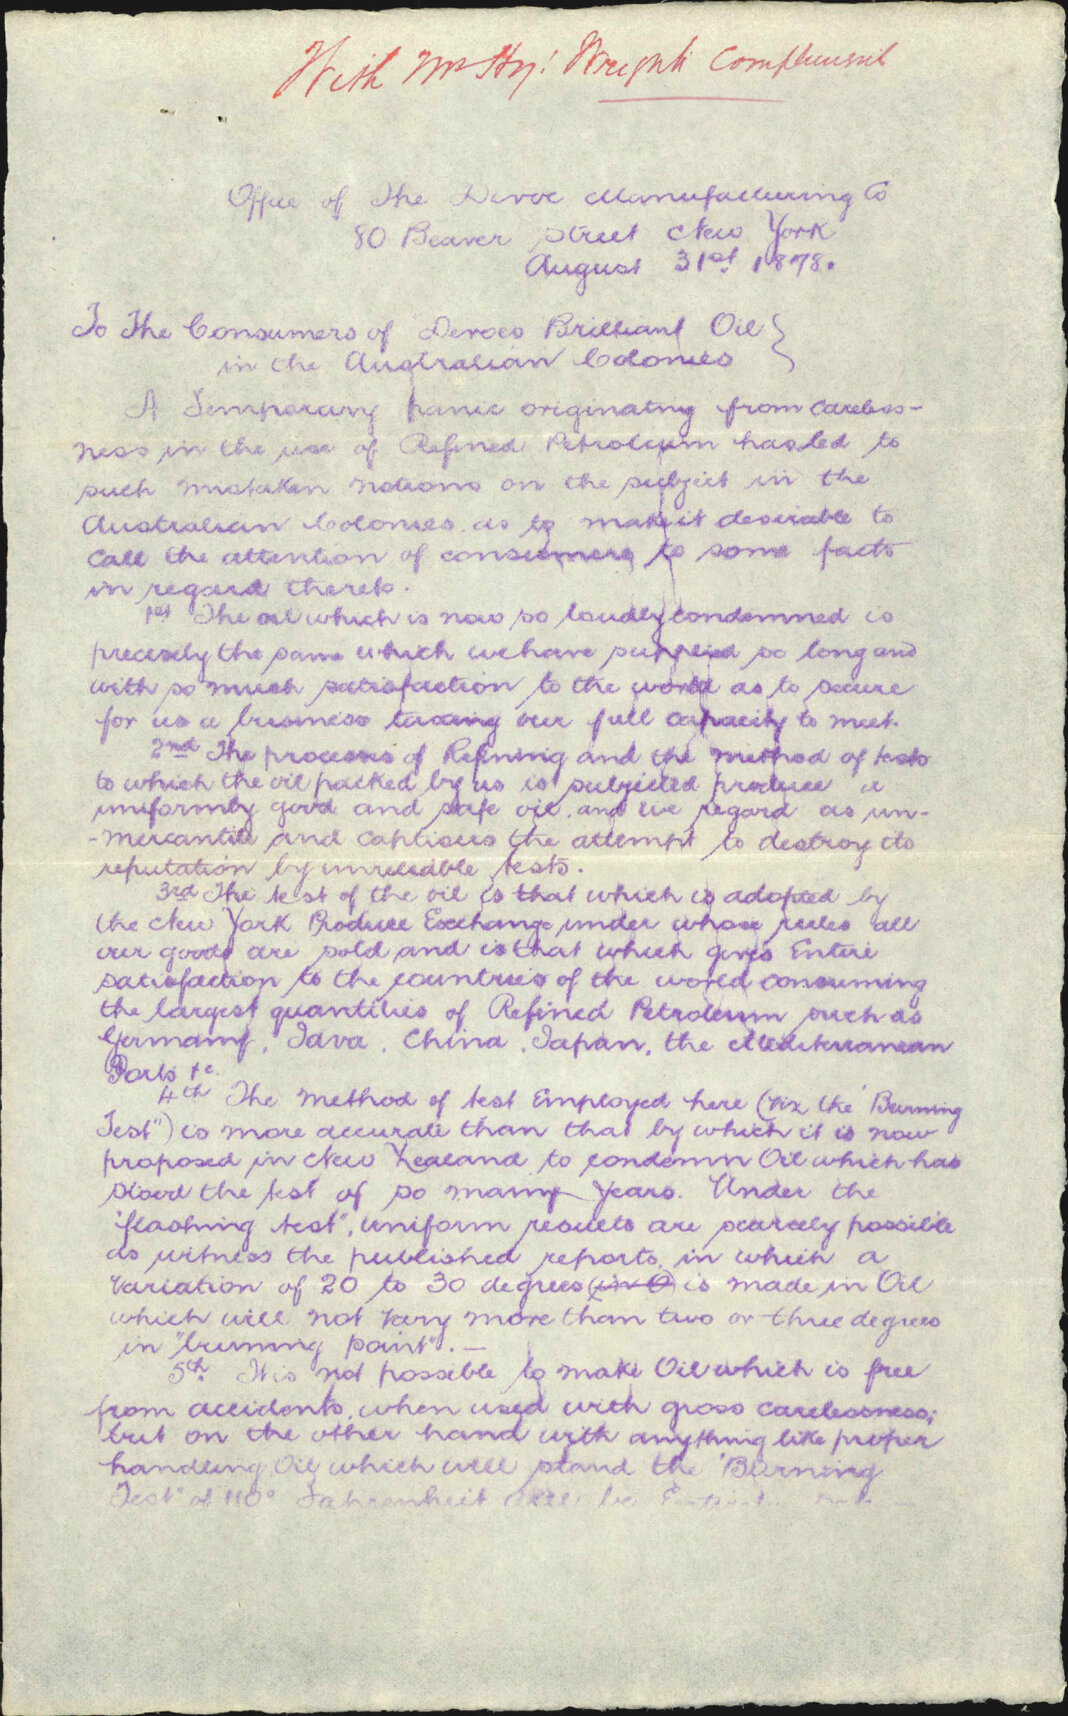 With Mr Hy: Wright's Compliments
Office of The Devoe Manufacturing Co
80 Beaver Street New York
August 31st 1878.
To The Consumers of Devoes Brilliant Oil
in the Australian Colonies
A Temporary panic originating from careless-
ness in the use of Refined Petroleum has led to
such mistaken notions on the subject in the
Australian Colonies as to make it desirable to
call the attention of consumers to some facts
in regard thereto.
1st The oil which is now so loudly condemned is
precisely the same which we have supplied so long and
with so much satisfaction to the world as to secure
for us a business taxing our full capacity to meet.
2nd The process of Refining and the method of tests
to which the oil packed by us is subjected produce a
uniformly good and safe oil, and we regard as un-
-mercantile and captious the attempt to destroy its
reputation by unreliable tests.
3rd The test of the oil is that which is adopted by
the New York Produce Exchange under whose rules all
our goods are sold and is that which gives Entire
satisfaction to the countries of the world consuming
the largest quantities of Refined Petroleum such as
Germany, Java, China, Japan, the Mediterranean
Ports &c.
4th The method of test Employed here (viz the "Burning
Test") is more accurate than that by which it is now
proposed in New Zealand to condemn Oil which has
stood the test of so many years. Under the
"flashing test", uniform results are scarcely possible
as witness the published reports, in which a
variation of 20 to 30 degrees is made in Oil
which will not vary more than two or three degrees
in "burning point". —
5th. It is not possible to make Oil which is free
from accidents, when used with gross carelessness;
but on the other hand with anything like proper
handling Oil which will stand the "Burning
Test" of 110° Fahrenheit will be